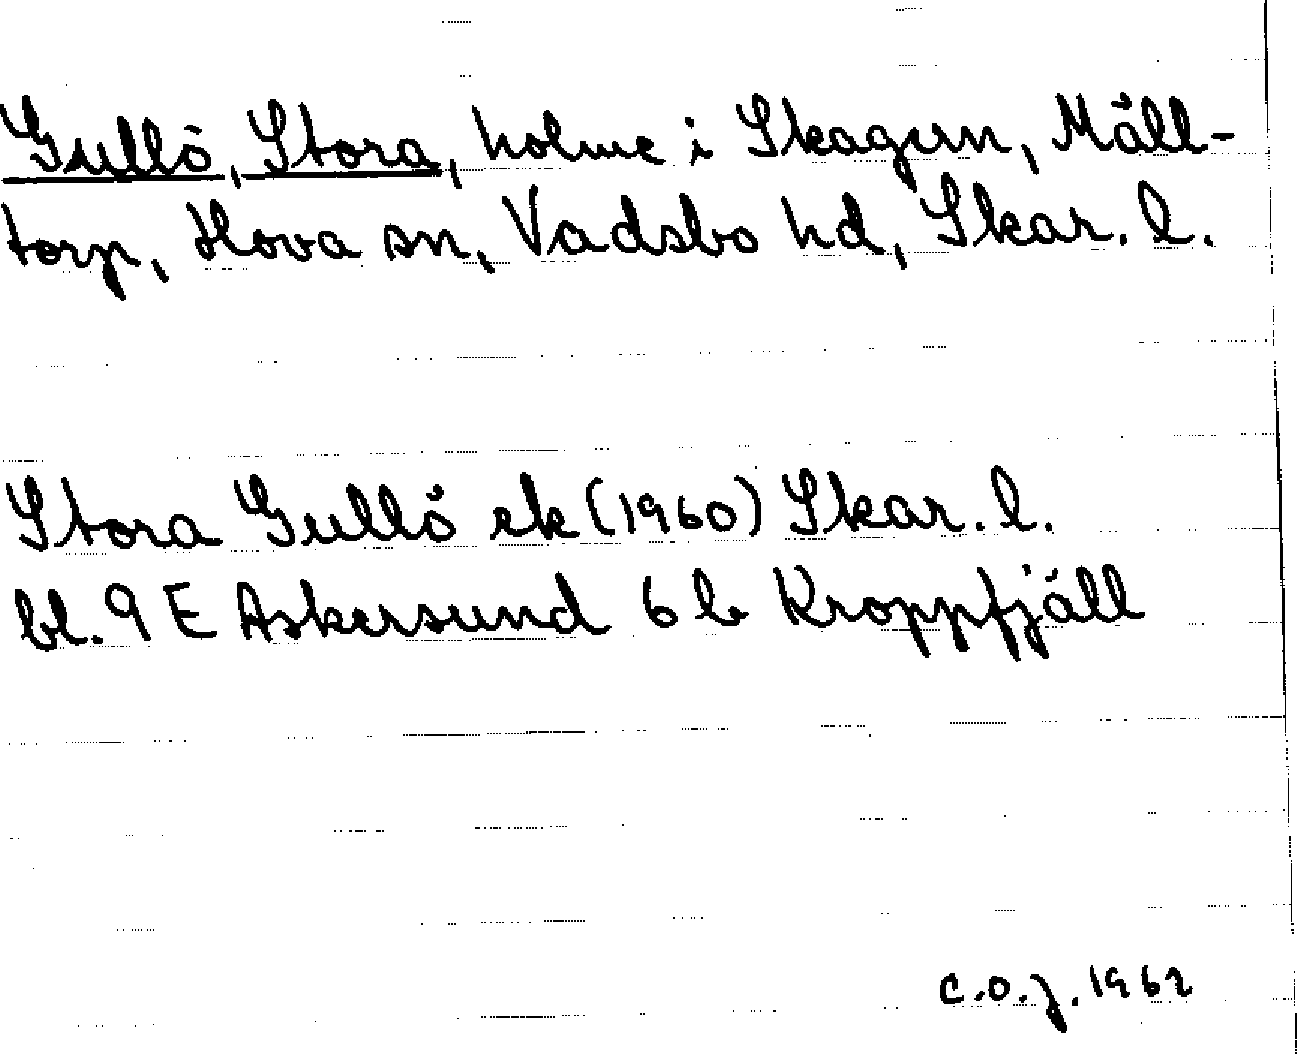 Gullö, Stora, holme i Skagern, Mäll-
torp, Hova sn, Vadsbo hd, Skar. l.
Stora Gullö ek (1960) Skar. l.
bl. 9 E Askersund 6 b Kroppfjäll
C.O.J. 1962